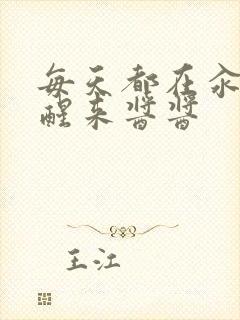 每天都在汆
醒来酱酱
王江